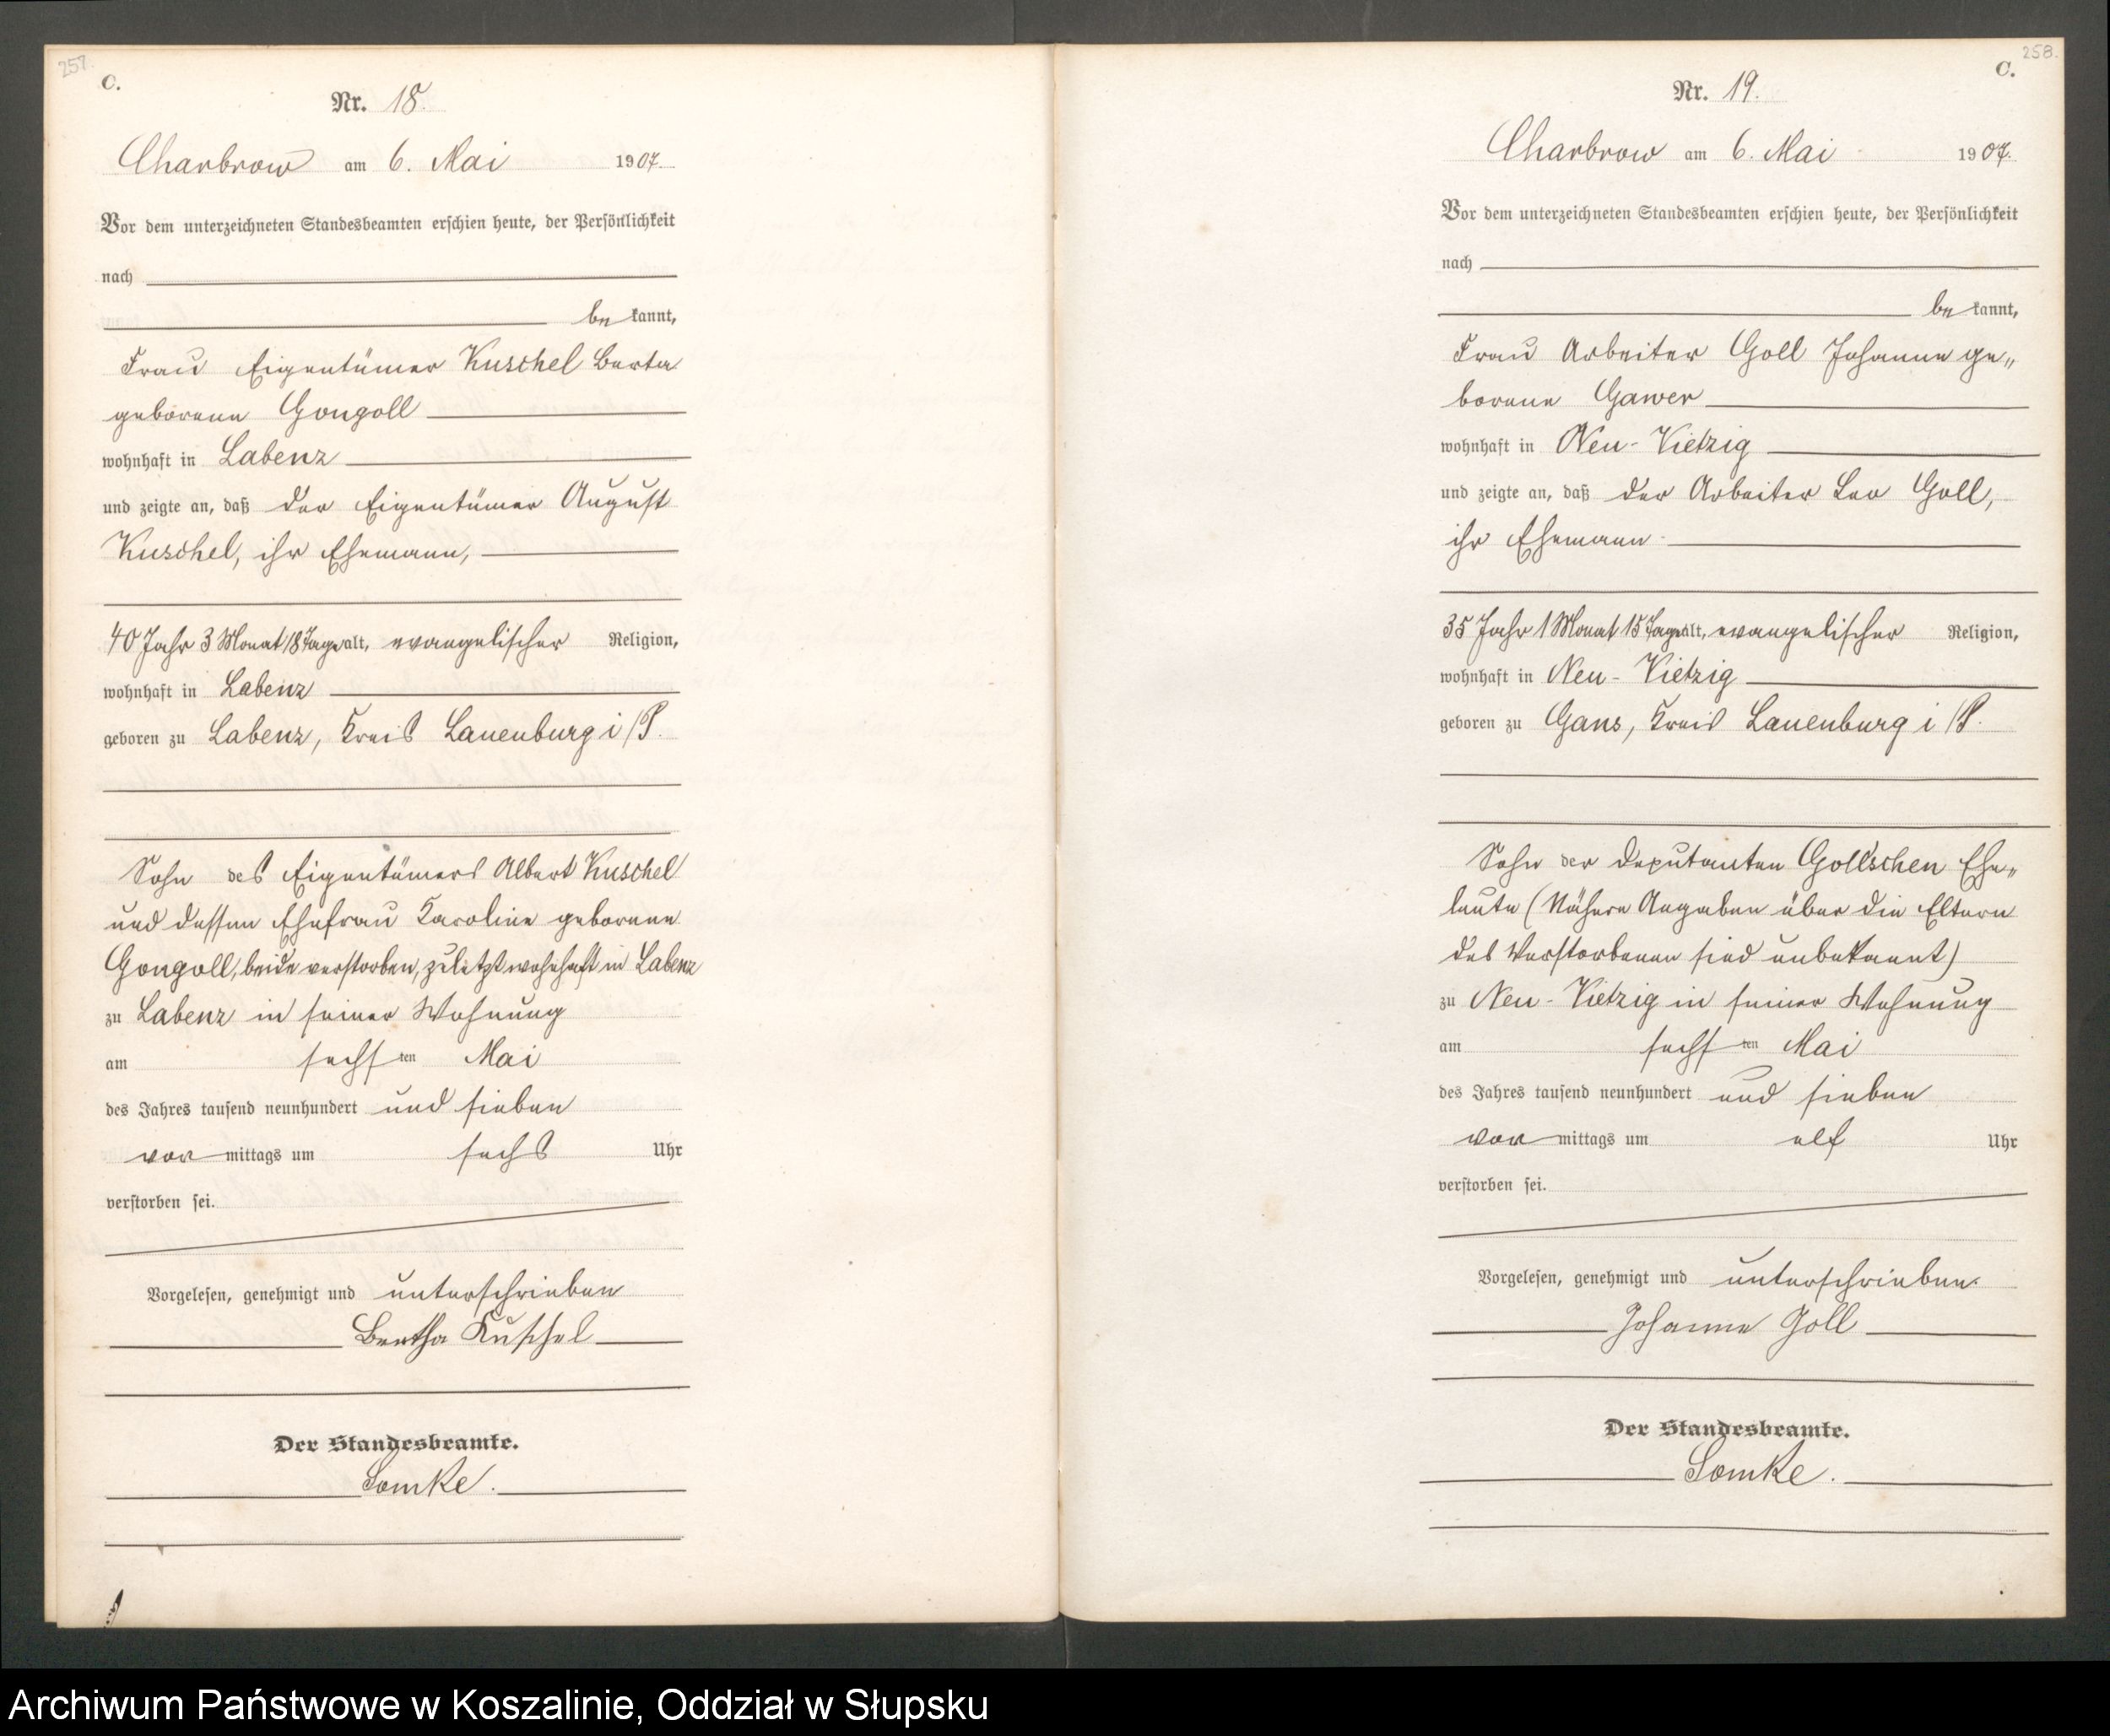 257.
C.
Nr. 18.
Charbrow am 6. Mai 1907.
Vor dem unterzeichneten Standesbeamten erschien heute, der Persönlichkeit
nach
be kannt,
Frau Eigentümer Kuschel Berta
geborene Gongoll
wohnhaft in Labenz
und zeigte an, daß der Eigentümer August
Kuschel, ihr Ehemann,
40 Jahr 3 Monat 18 Tage alt, evangelischer Religion,
wohnhaft in Labenz
geboren zu Labenz, Kreis Lauenburg i/P.
Sohn des Eigentümers Albert Kuschel
und dessen Ehefrau Karoline geborene
Gongoll, beide verstorben, zuletzt wohnhaft in Labenz
zu Labenz in seiner Wohnung
am sechsten Mai
des Jahres tausend neunhundert und sieben
vor mittags um sechs Uhr
verstorben sei.
Vorgelesen, genehmigt und unterschrieben
Bertha Kuschel
Der Standesbeamte.
Lomke.
258.
C.
Nr. 19.
Charbrow am 6. Mai 1907.
Vor dem unterzeichneten Standesbeamten erschien heute, der Persönlichkeit
nach
be kannt,
Frau Arbeiter Goll Johanne ge„
borene Gawer
wohnhaft in Neu-Vietzig
und zeigte an, daß der Arbeiter Leo Goll,
ihr Ehemann
35 Jahr 1 Monat 15 Tage alt, evangelischer Religion,
wohnhaft in Neu-Vietzig
geboren zu Gans, Kreis Lauenburg i/P.
Sohn der Deputanten Goll'schen Ehe„
leute (Nähere Angaben über die Eltern
des Verstorbenen sind unbekannt)
zu Neu-Vietzig in seiner Wohnung
am sechsten Mai
des Jahres tausend neunhundert und sieben
vor mittags um elf Uhr
verstorben sei.
Vorgelesen, genehmigt und unterschrieben
Johanne Goll
Der Standesbeamte.
Lomke.
Archiwum Państwowe w Koszalinie, Oddział w Słupsku